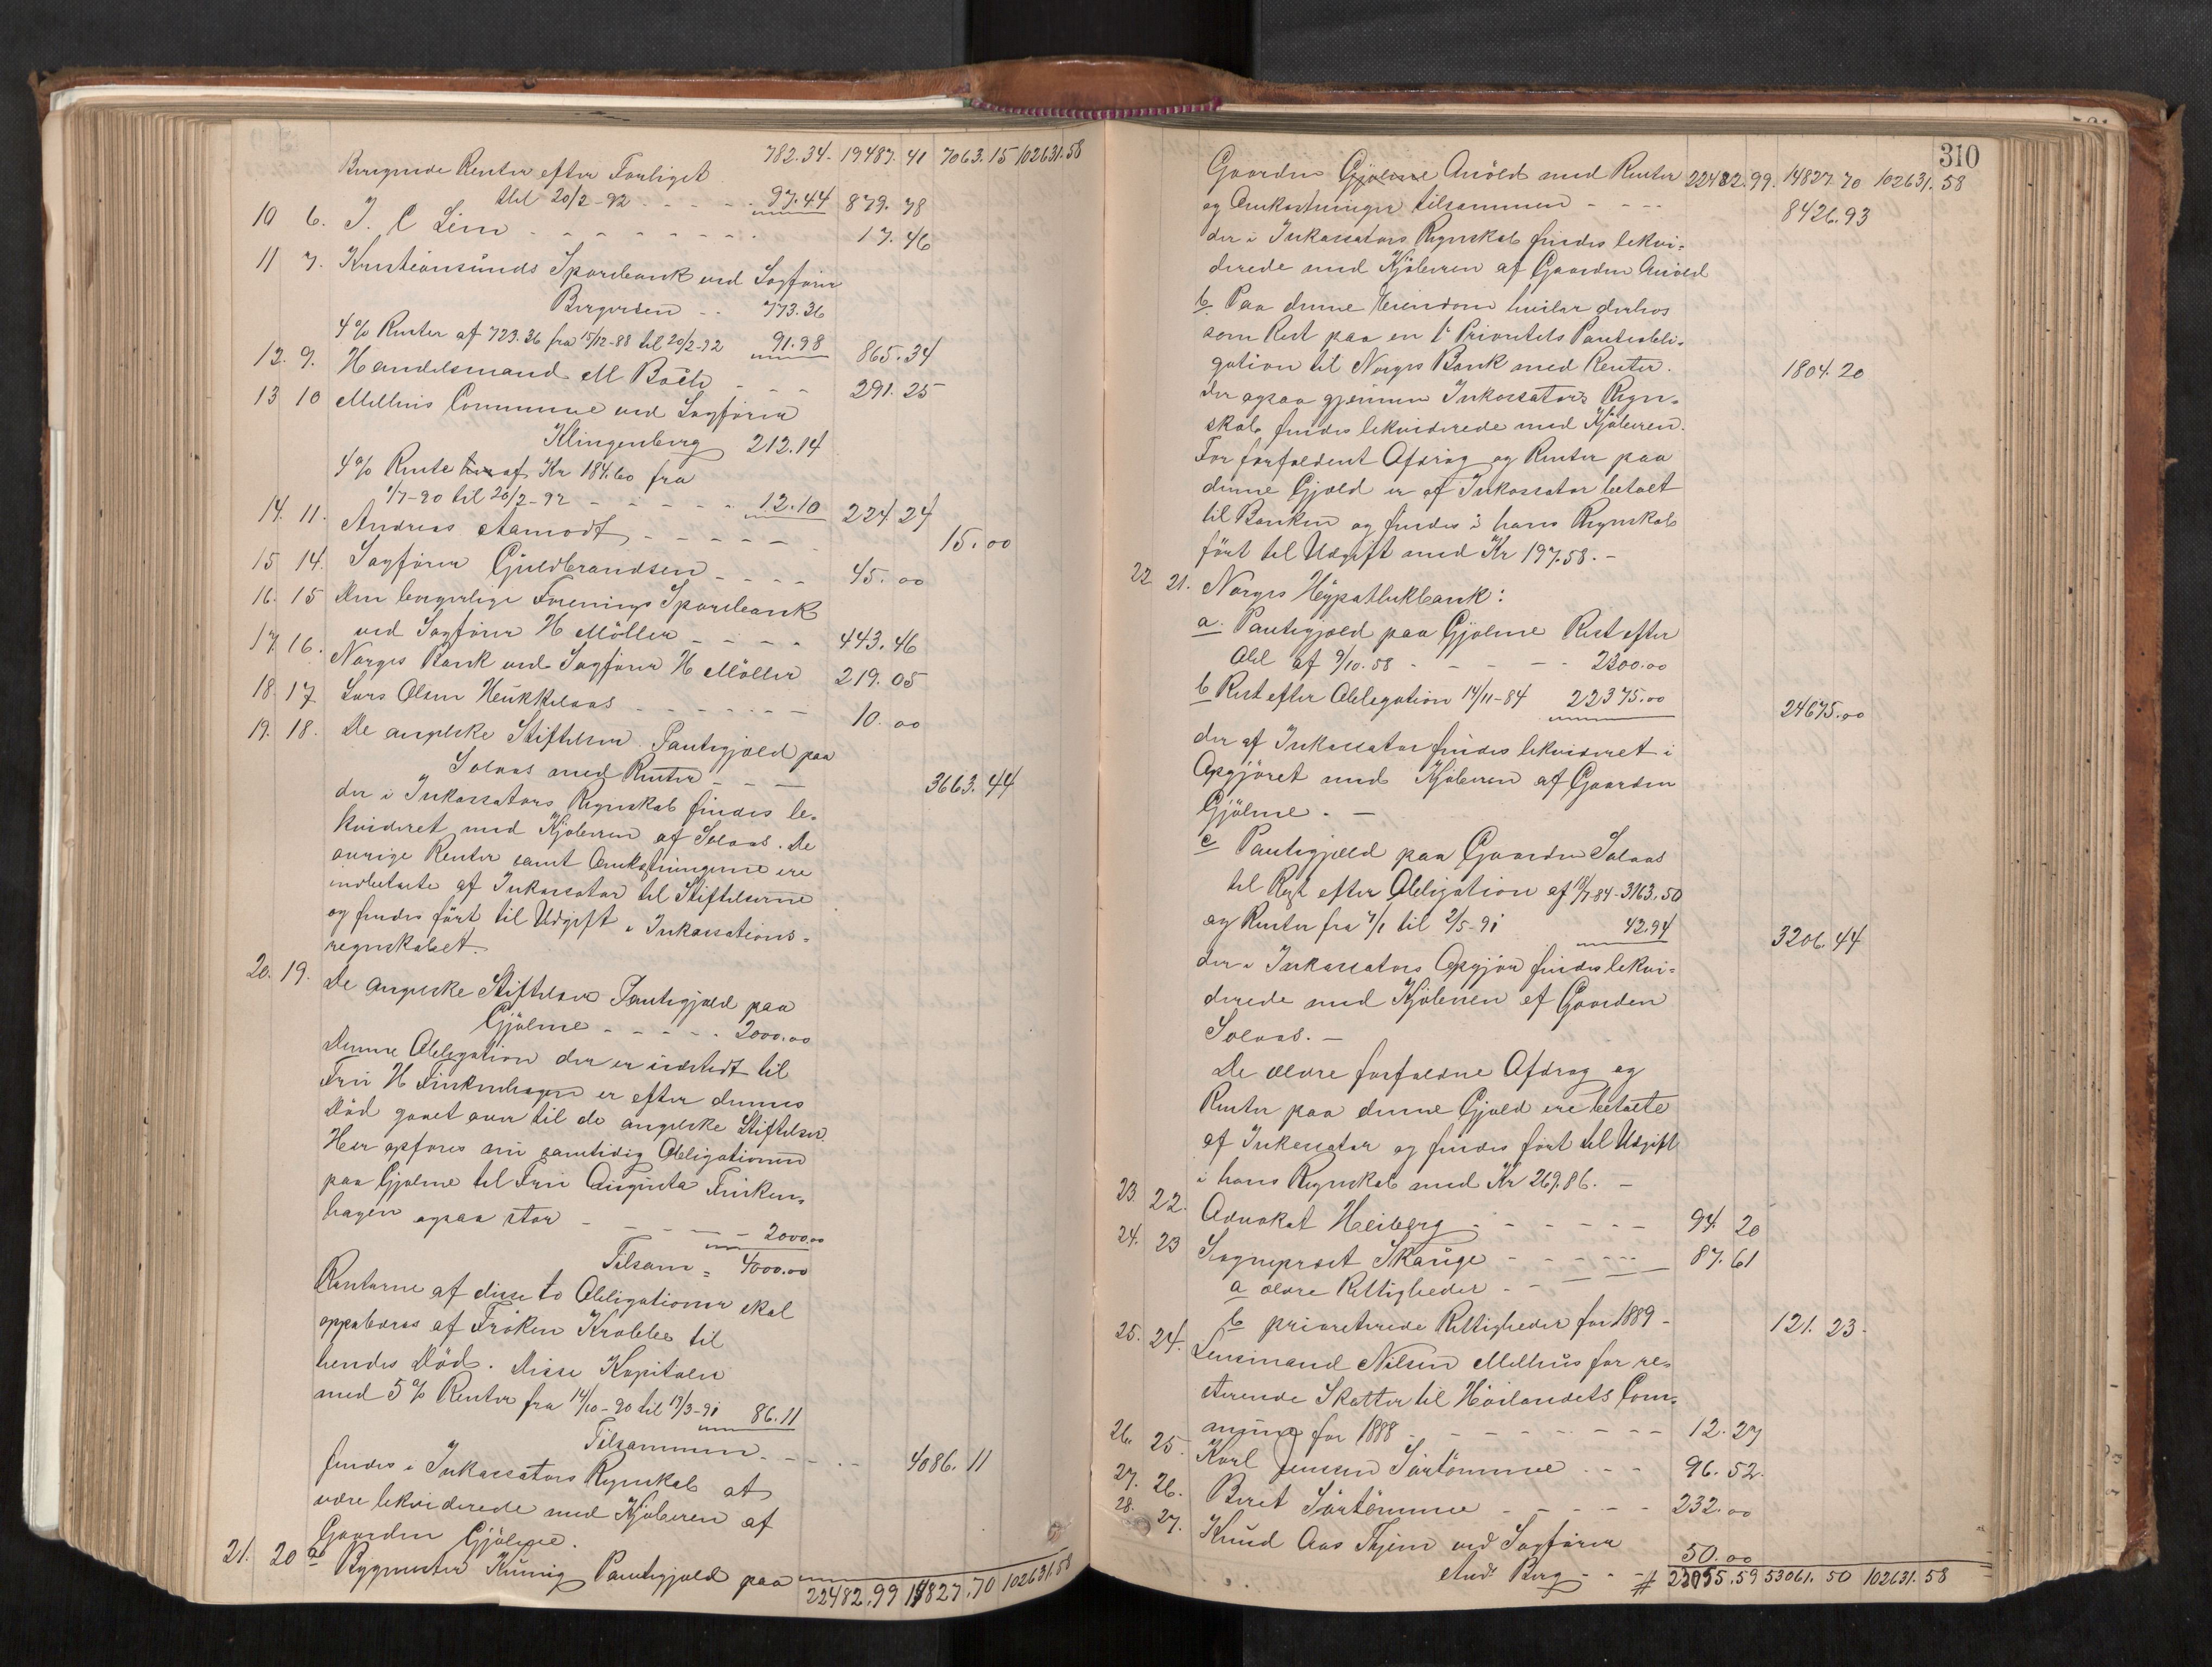 782.34. 19487.41 7063.15 102631.58
Beregnede Renter efter Forliget
til 20/2-92 - - - - - 97.44 879.78
10 6. J. C Lim - - - - - - - - 17.46
11 7. Kristiansunds Sparebank ved Sagfører
Bergersen - - 773.36
4% Renter af 723.36 fra 15/12-88 til 20/2-92 91.98 865.34
12. 9. Handelsmand M Bach - - - 291.25
13 10 Melhus Commune ved Sagfører
Klingenberg 212.14
4% Rente af Kr 184.60 fra
1/7-90 til 20/2-92 - - - - - 12.10 224.24
14. 11. Andreas Aamodt - - - - - - 15.00
15 14. Sagfører Guldbrandsen - - - - 45.00
16. 15 Den borgerlige Forenings Sparebank
ved Sagfører H Möller - - - - 443.46
17 16. Norges Bank ved Sagfører H Möller 219.05
18. 17 Lars Olsen Heukkelaas - - - - - - 10.00
19. 18. De angelske Stiftelser Pantegjæld paa
Solaas med Renter - - - 3663.44
der i Inkassators Regnskab findes le-
kvideret med Kjøberen af Solaas. De
øvrige Renter samt Omkostningerne ere
indbetalte af Inkassator til Stiftelserne
og findes ført til Udgift i Inkassations-
regnskabet.
20. 19. De angelske Stiftelser Pantegjæld paa
Gjølme - - - - - 2000.00
Denne Obligation der er udstedt til
Frü H Finkenhagen er efter dennes
Död gaaet over til de angelske Stiftelser.
Her opføres nu samtidig Obligationen
paa Gjølme til Frü Augusta Finken-
hagen ogsaa stor - - - - - 2000.00
Tilsam = 4000.00
Renterne af disse to Obligationer skal
oppebæres af Frøken Krabbe til
hendes Död. Disse Kapitaler
med 5% Renter fra 14/10-90 til 19/3-91 86.11
Tilsammen - - - - 4086.11
findes i Inkassators Regnskab at
være lekviderede med Kjøberen af
Gaarden Gjølme.
21. 20 a Bygmester Kunig Pantegjæld paa
22482.99 14827.70 102631.58
310
Gaarden Gjølme Auöld med Renter 22482.99. 14827.70 102631.58
og Omkostninger tilsammen - - - - 8426.93
der i Inkassators Regnskab findes lekvi-
derede med Kjøberen af Gaarden Auöld
b. Paa denne Eiendom hviler derhos
som Rest paa en 1ste Prioritets Panteobli-
gation til Norges Bank med Renter. 1804.20
der ogsaa gjennem Inkassators Regn-
skab findes lekviderede med Kjøberen.
For forfaldent Afdrag og Renter paa
denne Gjæld er af Inkassator betalt
til Banken og findes i hans Regnskab
ført til Udgift med Kr 197.58. -
22 21. Norges Hypothekbank:
a. Pantegjæld paa Gjølme Rest efter
Obl af 9/10.58 - - - - - 2300.00
b Rest efter Obligation 14/11-84 22375.00 24675.00
der af Inkassator findes lekvideret i
Opgjøret med Kjøberen af Gaarden
Gjølme. -
c Pantegjæld paa Gaarden Solaas
til Rest efter Obligation af 18/7 84 - 3163.50
og Renter fra 7/1 til 2/5-91 42.94 3206.44
der i Inkassators Opgjør findes lekvi-
derede med Kjøberen af Gaarden
Solaas. -
De ældre forfaldne Afdrag og
Renter paa denne Gjæld ere betalte
af Inkassator og findes ført til Udgift
i hans Regnskab med Kr 269.86. -
23. 22. Advokat Heiberg - - - - - - 94.20
24. 23 Sogneprest Skauge - - - - - - 87.61
a ældre Rettigheder - - - - -
b prioriterede Rettigheder for 1889 - 121.23.
25. 24. Lensmand Nilsen Melhus for re-
sterende Skatter til Höilandets Com-
mune for 1888 - - - - - - - - 12.27
26. 25. Karl Jensen Sörtömme - - - 96.52.
27. 26. Beret Sörtömme - - - - - 232.00
28. 27. Knud Aas Thjem ved Sagfører
Andr Berg - - - 50.00
# 23055.59 53061.50 102631.58